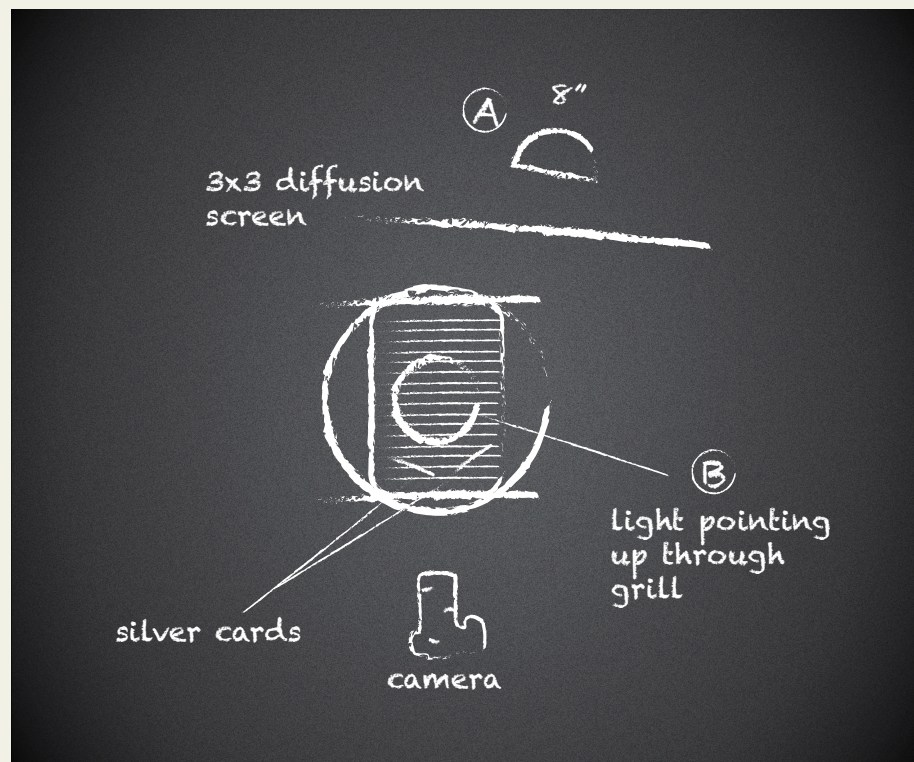 A
8"
3x3 diffusion
screen
B
light pointing
up through
grill
silver cards
camera